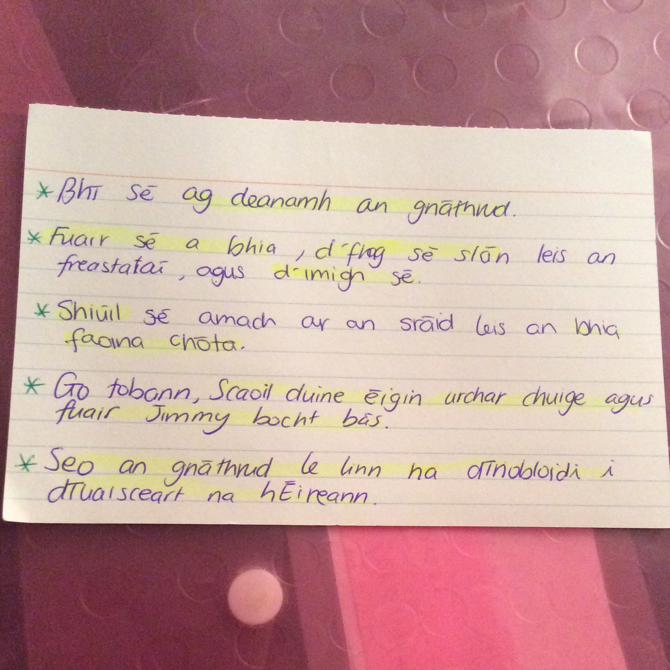 * Bhī sē ag deanamh an gnāthrud.
* Fuair sē a bhia, d'fhag sē slān leis an
freastataī, agus d'imigh sē.
* Shiūil sē amach ar an srāid leis an bhia
faoina chōta.
* Go tobann, Scaoil duine ēigin urchar chuige agus
fuair Jimmy bocht bās.
* Seo an gnāthrud le linn na dTriobloidi i
dTuaisceart na hĒireann.